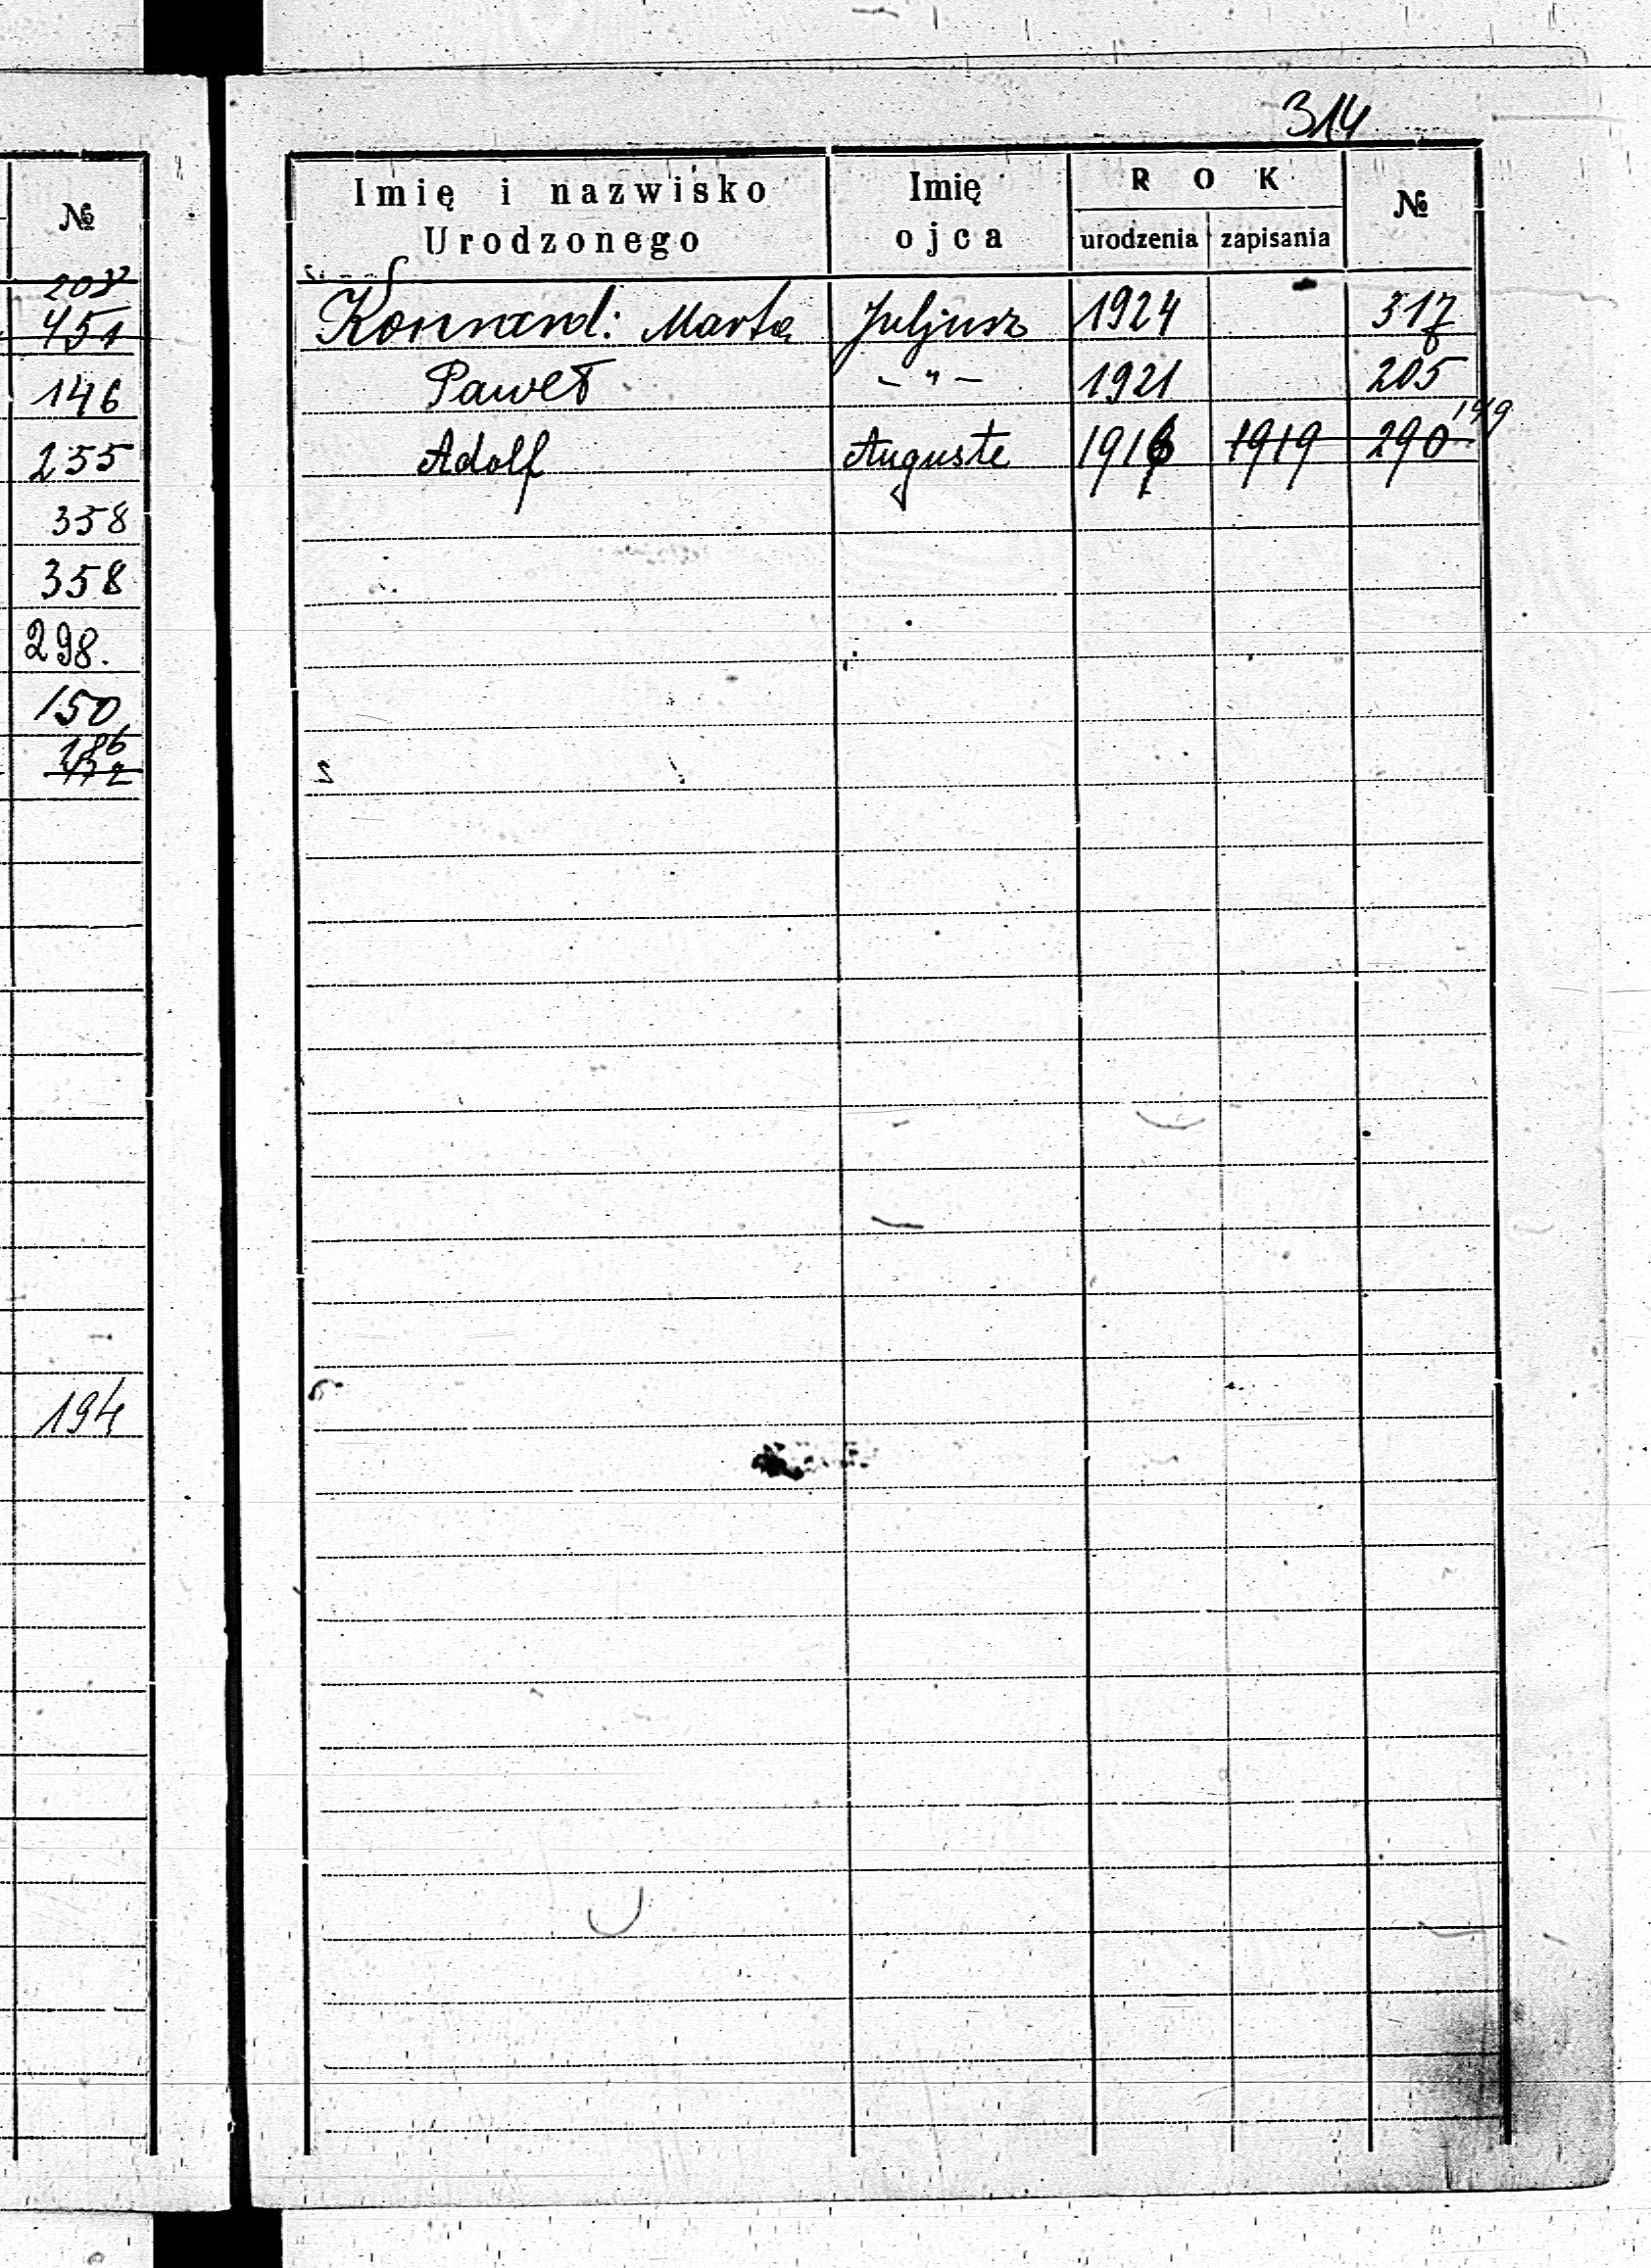 №
208
451
146
255
358
358
298.
150
186
194
314
Imię i nazwisko Urodzonego
Imię ojca
ROK
urodzenia
zapisania
№
Konrad: Marta Juljusz 1924 317
Paweł – " – 1921 205
Adolf Auguste 1919 290 149